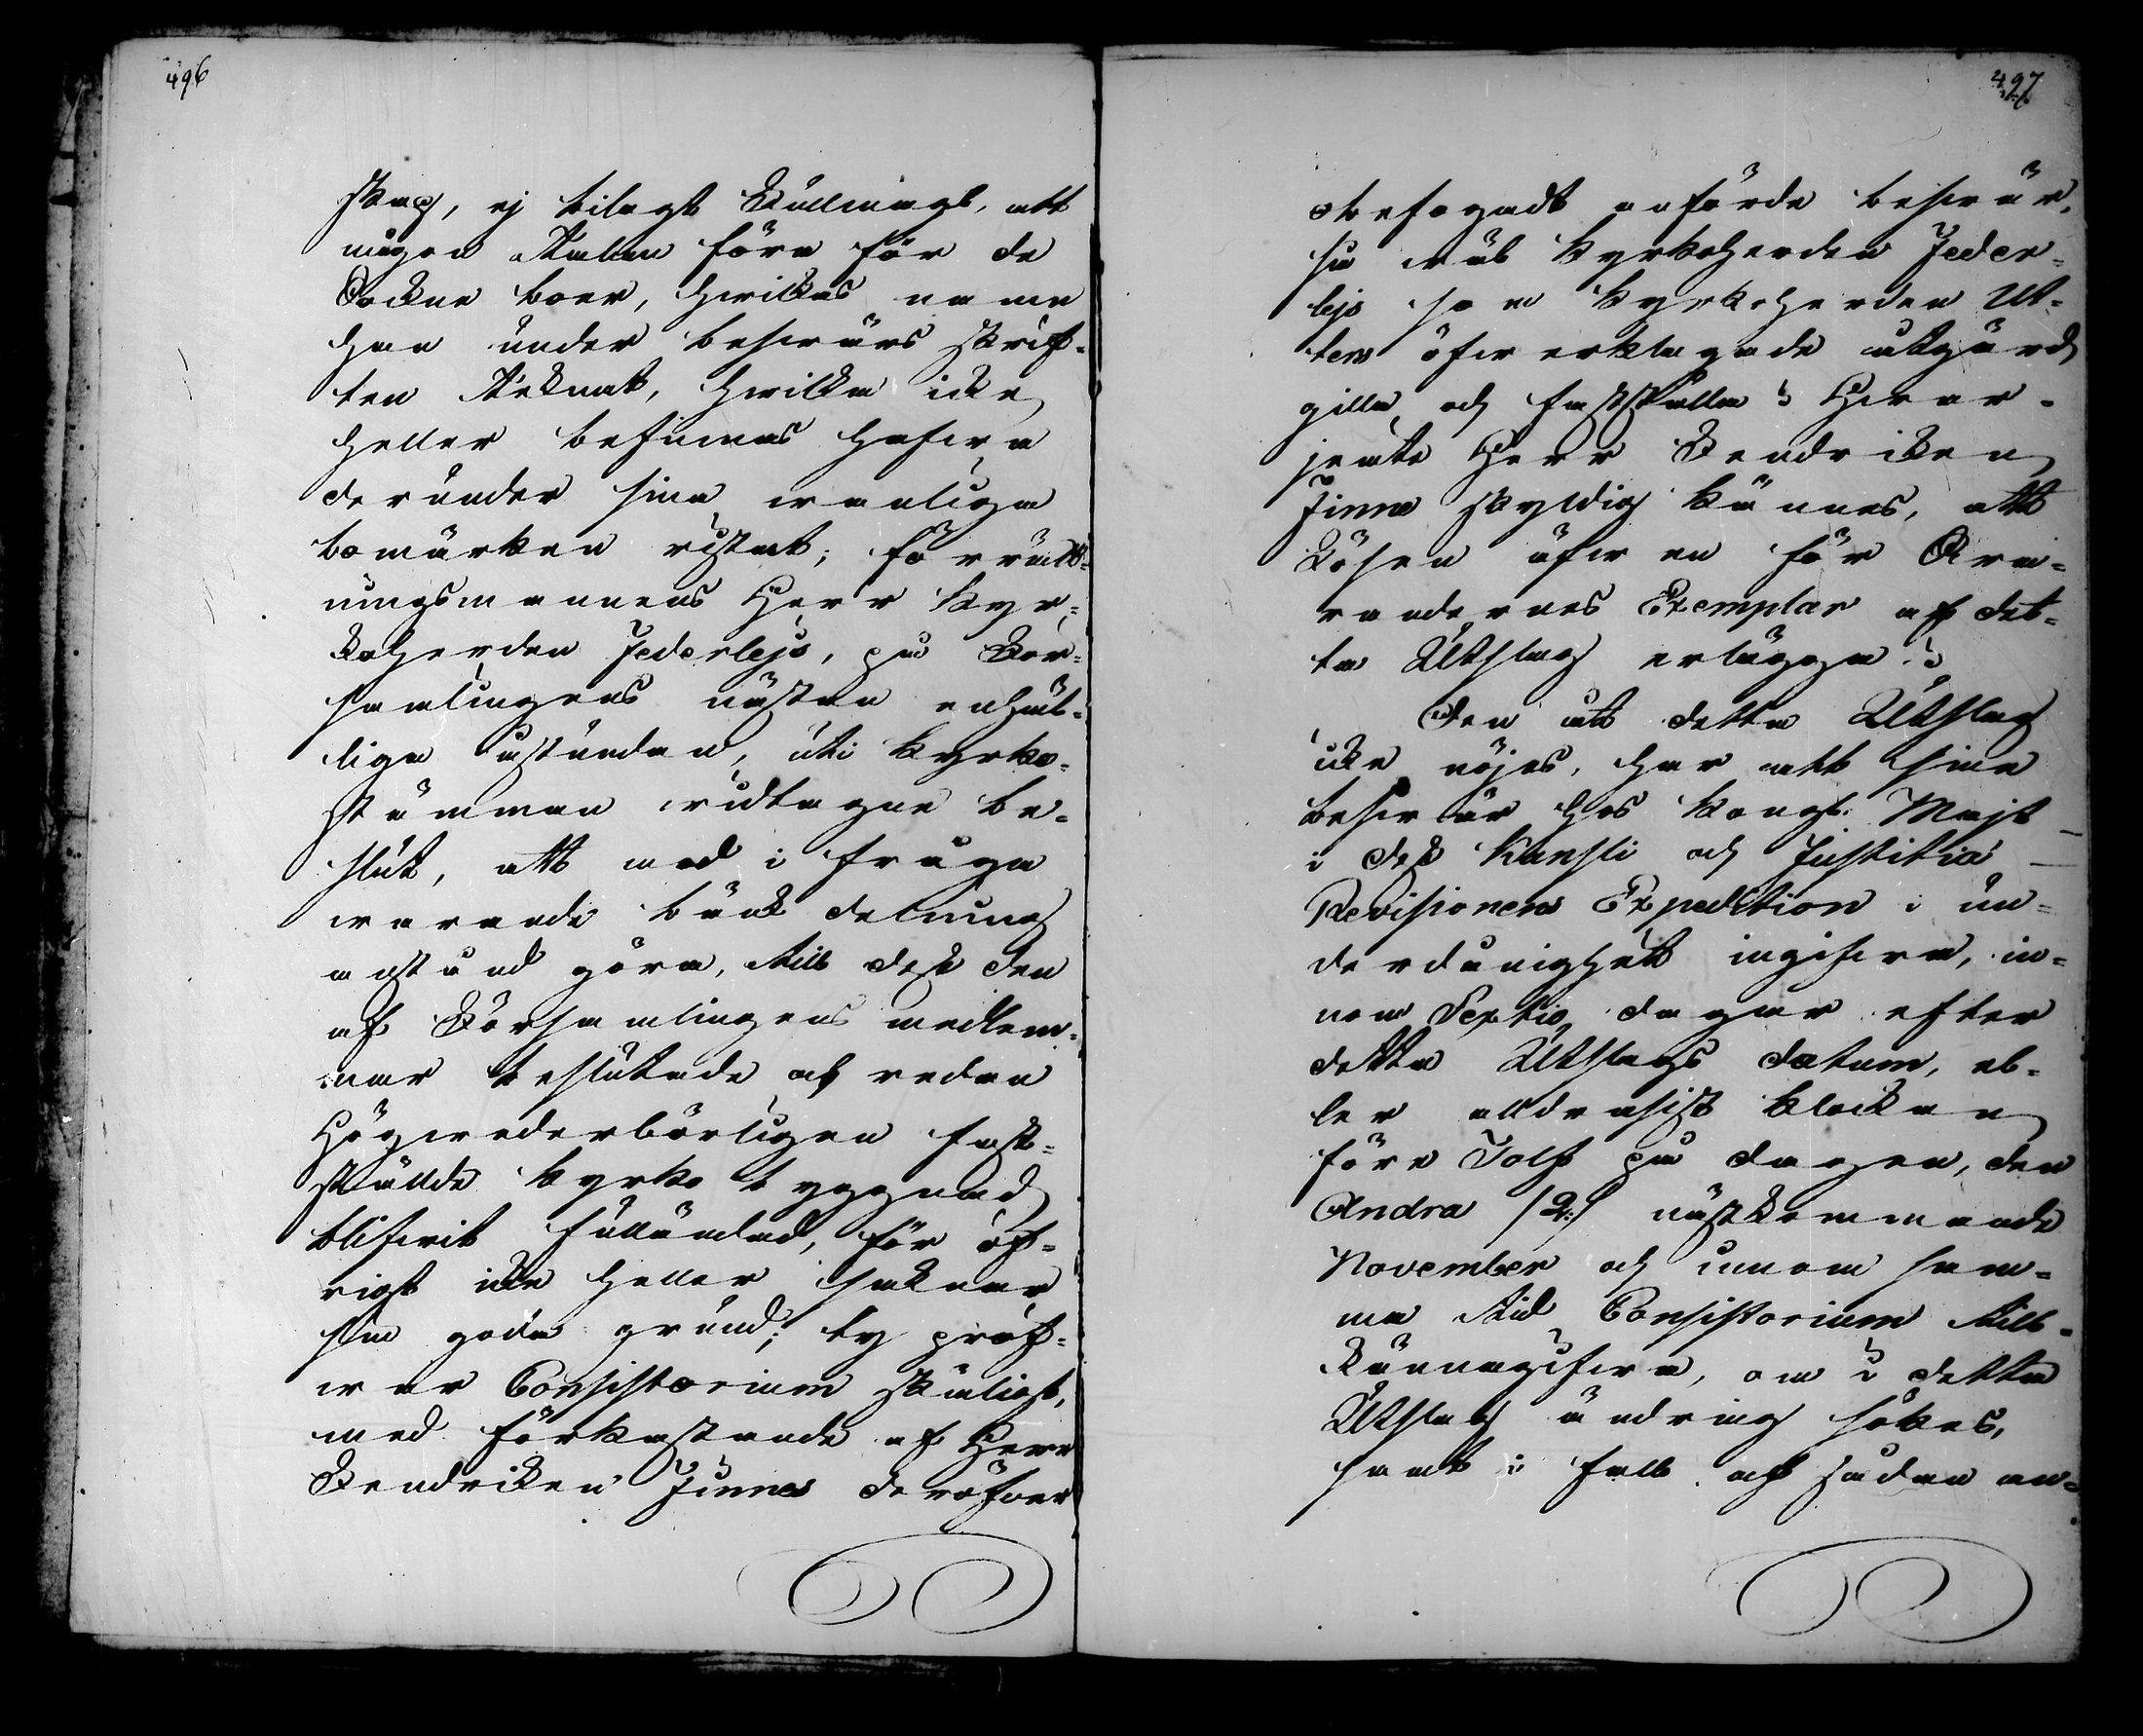 496
skap, ej bilagt Fullmagt, att
någon talan föra för de
Sockne boer, hwilkas namn
han under beswärs skrif-
ten teknat, hwilka icke
heller befinnas hafwa
derunder sina wanliga
bomärken ristat; förrätt-
ningsmannens Herr Kyr-
koherden Federlejs, på För-
samlingens nästan enhäl-
liga åstundan, uti Kyrko-
stämman widtagne be-
slut, att med i fråga
warande bänk delning
anstånd göra, till dess den
af Församlingens medlem-
mar beslutade och redan
Högwederbörligen fast-
ställde Kyrko byggnad
blifwit fulländad, för öf-
rigt icke heller saknar
sin goda grund; ty pröf-
war Consistorium skäligt,
med förkastande af Herr
Fendriken Finnes deröfwer
497
obefogadt anförde beswär,
så wäl Kyrkoherden Feder-
lejs som Kyrkoherden Ut-
ters öfwerklagade åtgärd
gilla och fastställa; Hwar-
jemte Herr Fendriken
Finne skyldig kännes, att
Lösen äfwen för Swa-
randernes Exemplar af det-
ta Utslag erlägga.
Den åt detta Utslag
icke nöjes, har att sina
beswär hos Kongl. Majt
i dess Kansli och Justitiæ
Revisionens Expedition i un-
derdånighet ingifwa, in-
nom Sextio dagar efter
detta Utslags datum, el-
ler aldrasist klockan
före Tolf på dagen, den
Andra /2:/ nästkommande
November och innom sam-
ma tid Consistorium till-
kännagifwa, om i detta
Utslag ändring sökes,
samt i fall af sådan an-